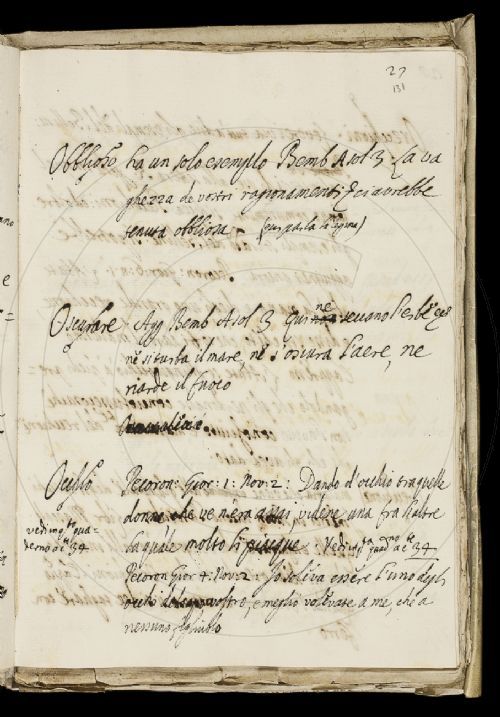 27
131
Obblioso ha un solo esempio Bemb Asol 3 - La va
ghezza de vostri ragionamenti ci avrebbe
tenuta obbliosa -
Oscurare Agg Bemb Asol 3 Qui ne seccano l'erbe
nè si turba il mare, nè s'oscura l'aere, ne
riarde il fuoco
Occhio Pecoron: Gior: 1: Nov: 2: Dando d'occhio tra quelle
donne che ve n'era assai, videne una fra l'altre
la quale molto li piacque : Vedi
34
vedi
derno a c 34
Pecoron Gior 4. Nov. 2 : Io soleva essere l'uno degli
occhi vostro, e meglio volevate a me, che a
nessuno figliuolo